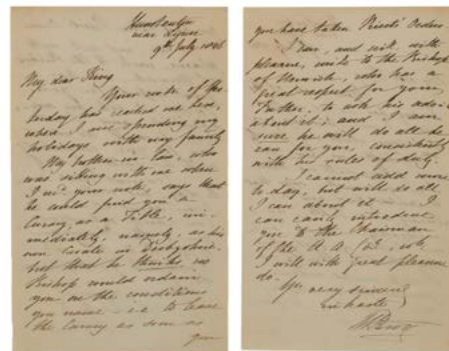 near Lynn
9th July 1846
My dear King
Your note of
has reached me here,
where I am spending my
holidays with my family
My brother-in-law, who
was sitting with me when
I your note, says that
he could find you a
Curacy, as a Title, im-
mediately, namely, as his
own Curate in Derbyshire,
but that he thinks no
Bishop would ordain
you on the conditions
you name - i.e. to leave
the Curacy as soon as
you
you have taken Priests' Orders
I can, and will, with
pleasure, write to the Bishop
of Norwich, who has a
great respect for your
Father, to ask his advice
about it; and I am
sure he will do all he
can for you, consistently
with his rules of duty.
I cannot add more
to day, but will do all
I can about it. I
can easily introduce
you to the Chairman
of the
I will with great pleasure
do.
Yrs very sincerely
in haste